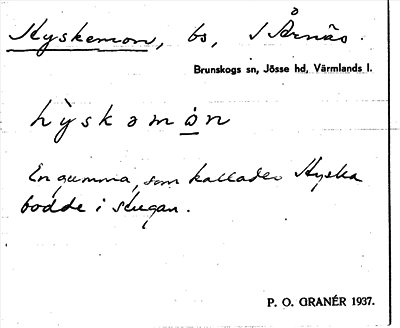 Hyskemon, bs, I Årnäs.
Brunskogs sn, Jösse hd, Värmlands l.
hy̆skəmòn
En gumma, som kallades Hyska
bodde i stugan.
P. O. GRANÉR 1937.